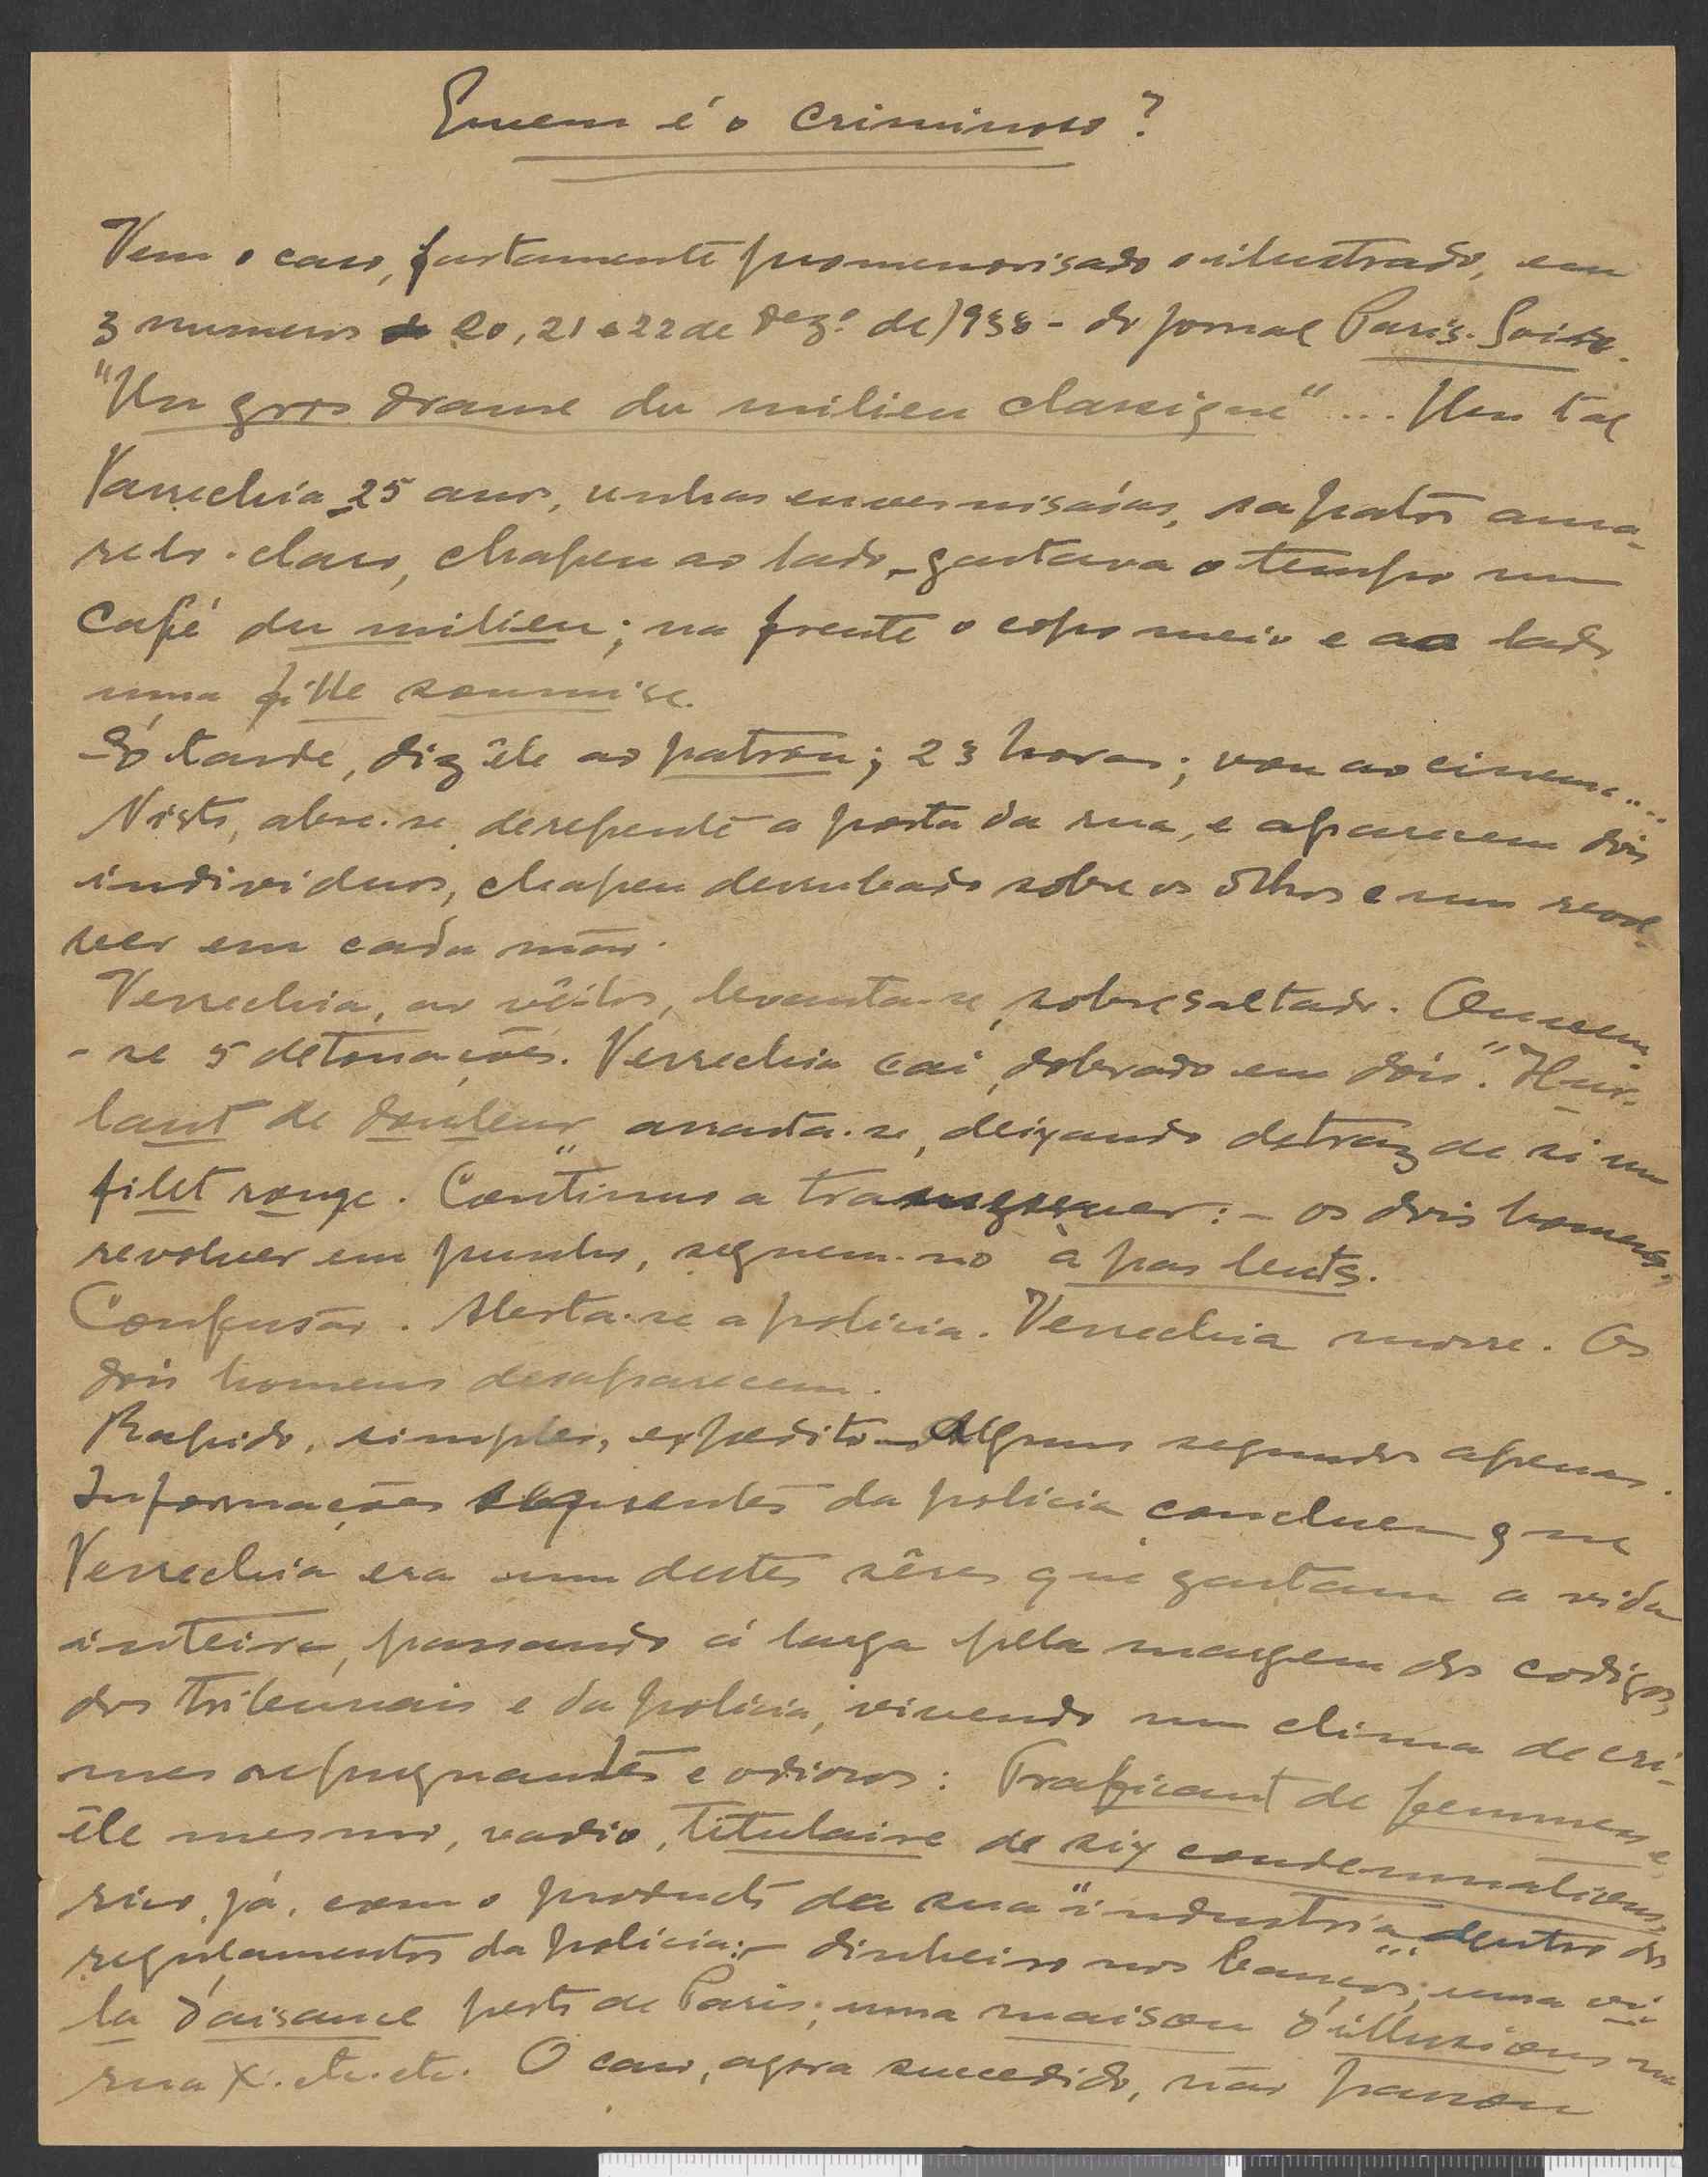 Quem é o criminoso?
Vem o caso, fartamente promenorisado e ilustrado, em
3 numeros 20, 21 e 22 de Dezº de 1938 - do jornal Paris-Soir.
"Un gros drame du milieu classique" ... Um tal
Verrechia, 25 anos, unhas envernisadas, sapatos ama-
relo-claro, chapeu ao lado, gastava o tempo num
café du milieu; na frente o copo meio e ao lado
uma fille soumise.
- É tarde, diz êle ao patron; 23 horas; vou ao cinema....
Nisto, abre-se derepente a porta da rua, e aparecem dois
individuos, chapeu derrubado sobre os olhos e um revol-
ver em cada mão.
Verrechia, ao vê-los, levanta-se, sobresaltado. Ouvem
-se 5 detonações. Verrechia cai, dobrado em dois. "Hur-
lant de douleur" arrasta-se, deixando detraz de si um
filet rouge. Continua a : - os dois homens,
revolver em punho, seguem-no à pas lents.
Confusão. Alerta-se a policia. Verrechia morre. Os
dois homens desaparecem.
Rapido, simples, expedito - Alguns segundos apenas.
Informações da policia concluem que
Verrechia era um destes sêres que gastam a vida
inteira, passando á larga pela margem dos codigos,
dos tribunais e da policia, vivendo num clima de cri-
mes repugnantes e odiosos: Traficant de femmes e
êle mesmo, vadio, titulaire de six condemnations,
rico já, com o producto da sua "industria" ... dentro dos
regulamentos da policia: - dinheiro nos bancos; uma vi-
la d'aisance perto de Paris; uma maison d'illusions na
rua X. etc. etc. O caso, agora sucedido, não passou